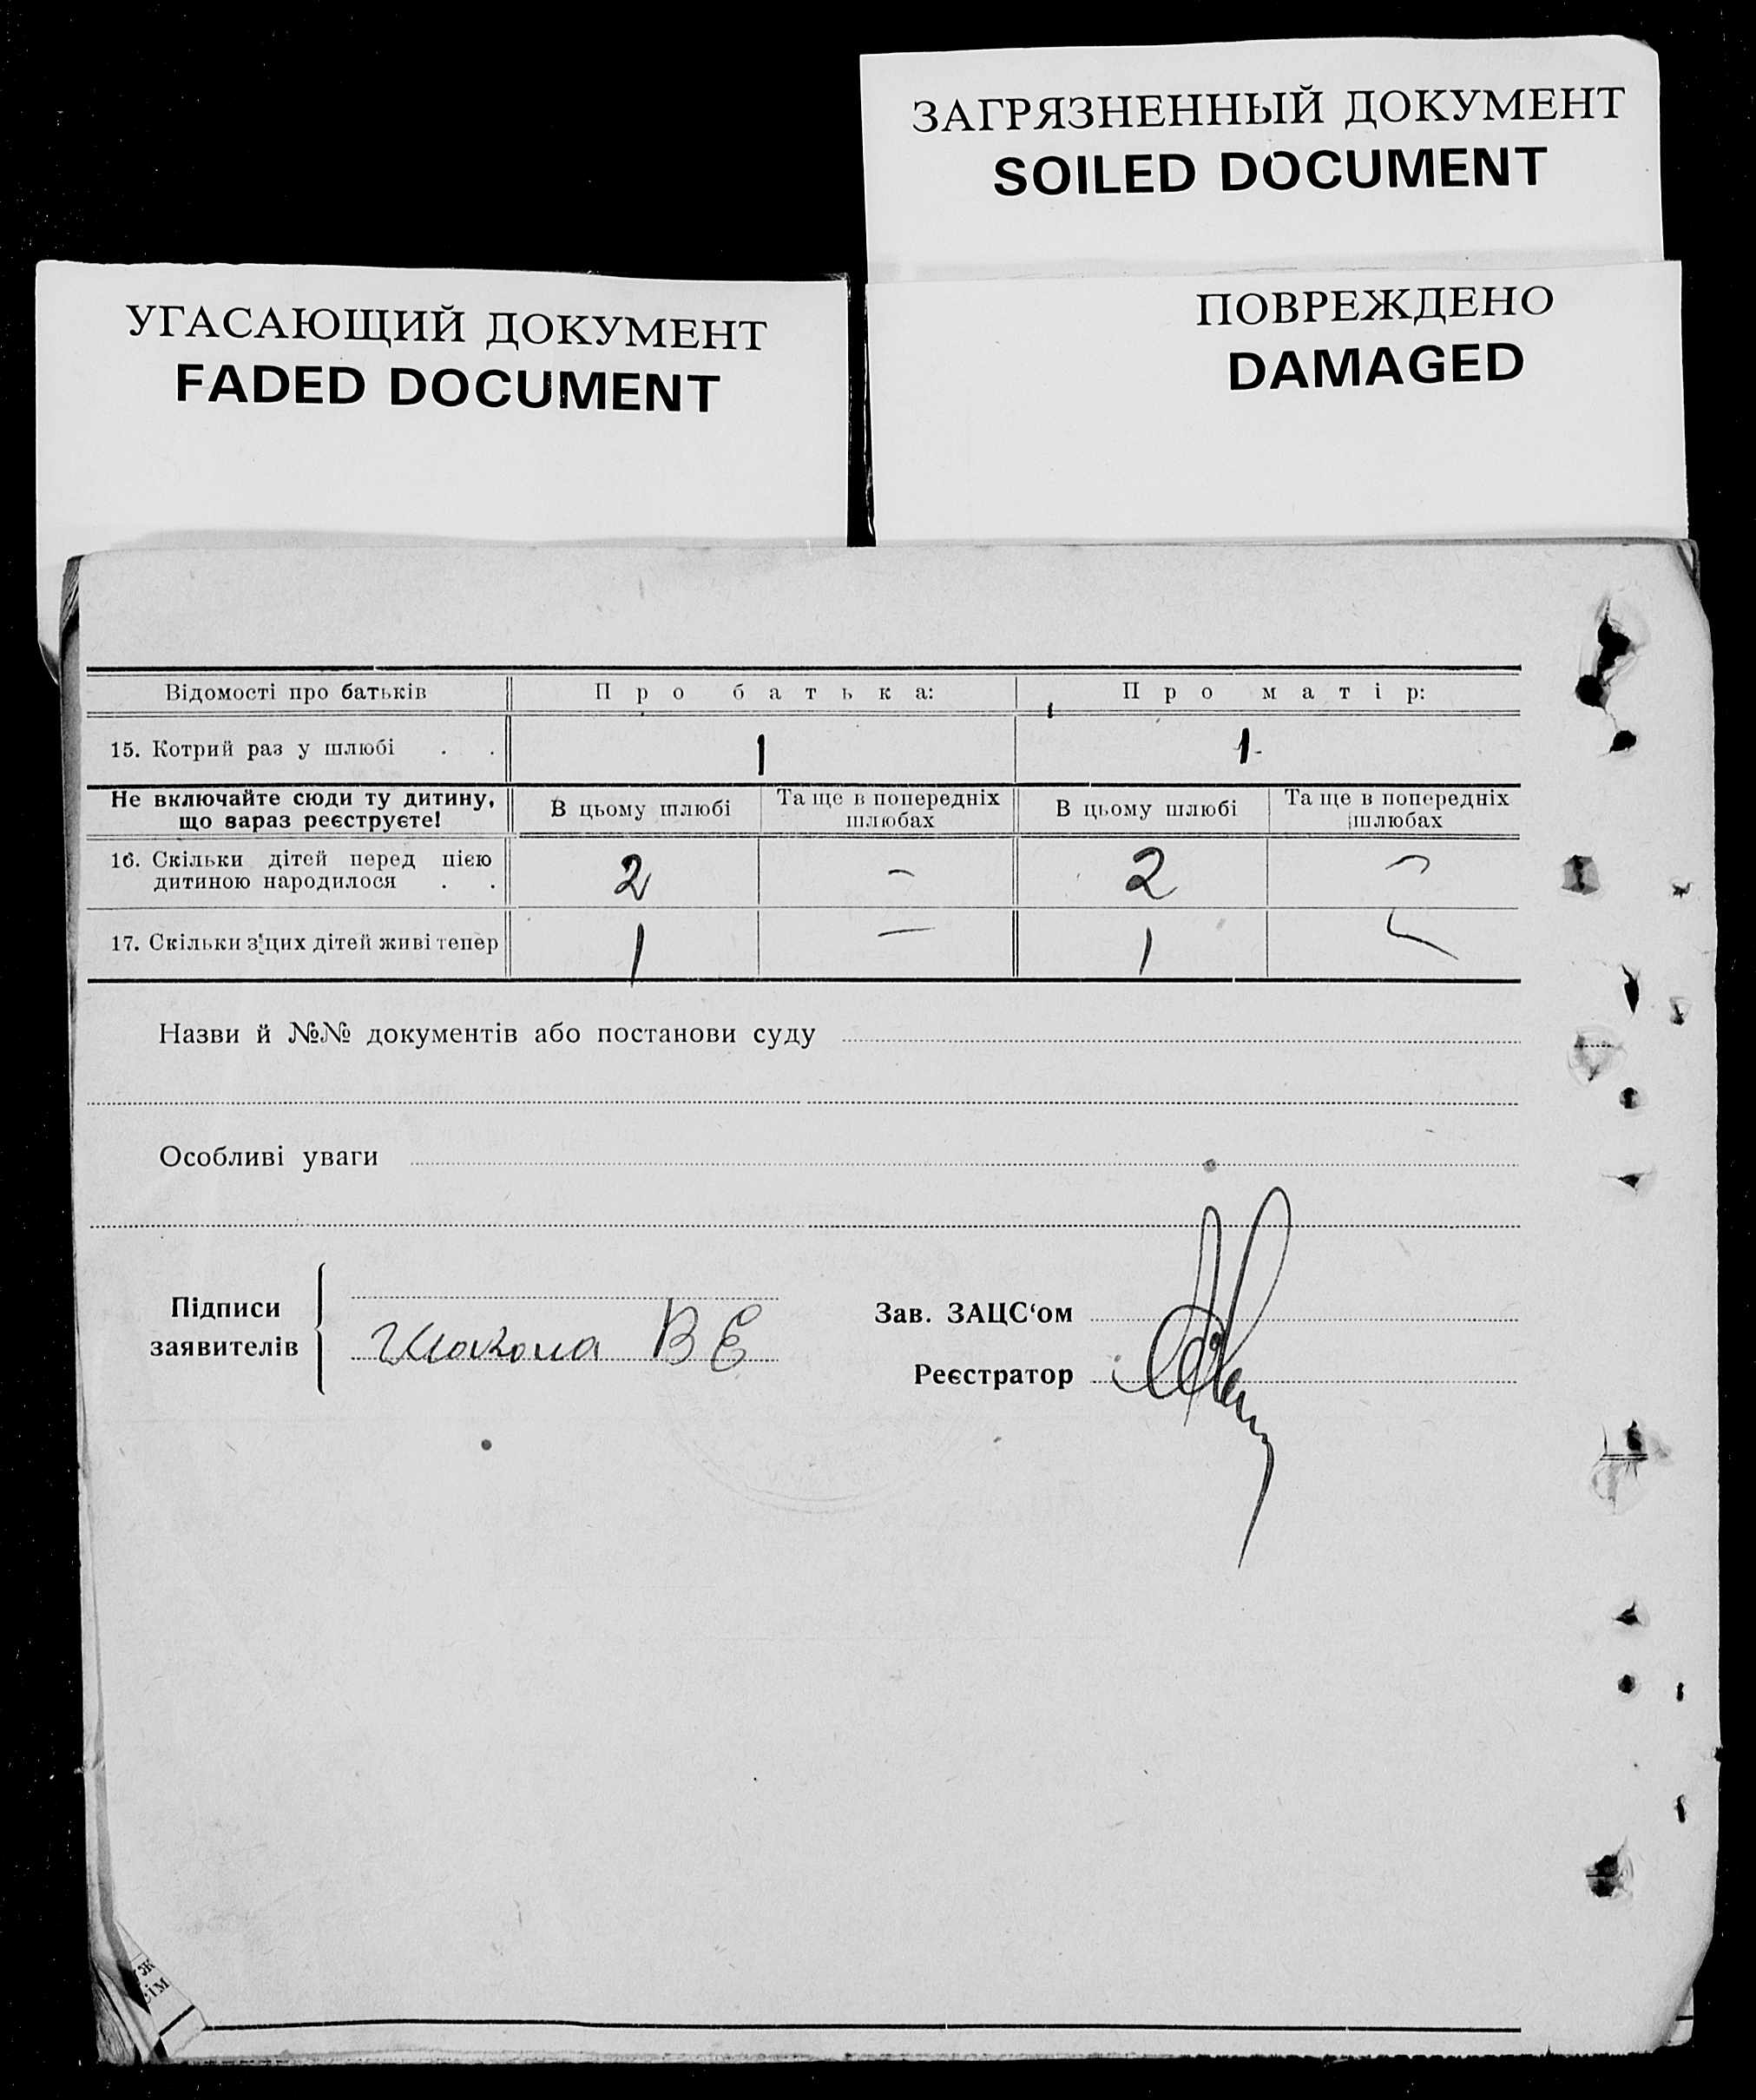 ЗАГРЯЗНЕННЫЙ ДОКУМЕНТ
SOILED DOCUMENT
УГАСАЮЩИЙ ДОКУМЕНТ
FADED DOCUMENT
ПОВРЕЖДЕНО
DAMAGED
Відомості про батьків Про батька: Про матір:
15. Котрий раз у шлюбі . . 1 1
Не включайте сюди ту дитину, В цьому шлюбі Та ще в попередніх В цьому шлюбі Та ще в попередніх
що зараз реєструєте! шлюбах шлюбах
16. Скільки дітей перед цією 2 – 2 –
дитиною народилося . .
17. Скільки з цих дітей живі тепер 1 – 1 –
Назви й №№ документів або постанови суду
Особливі уваги
Підписи
заявителів
В Е
Зав. ЗАЦС‘ом
Реєстратор